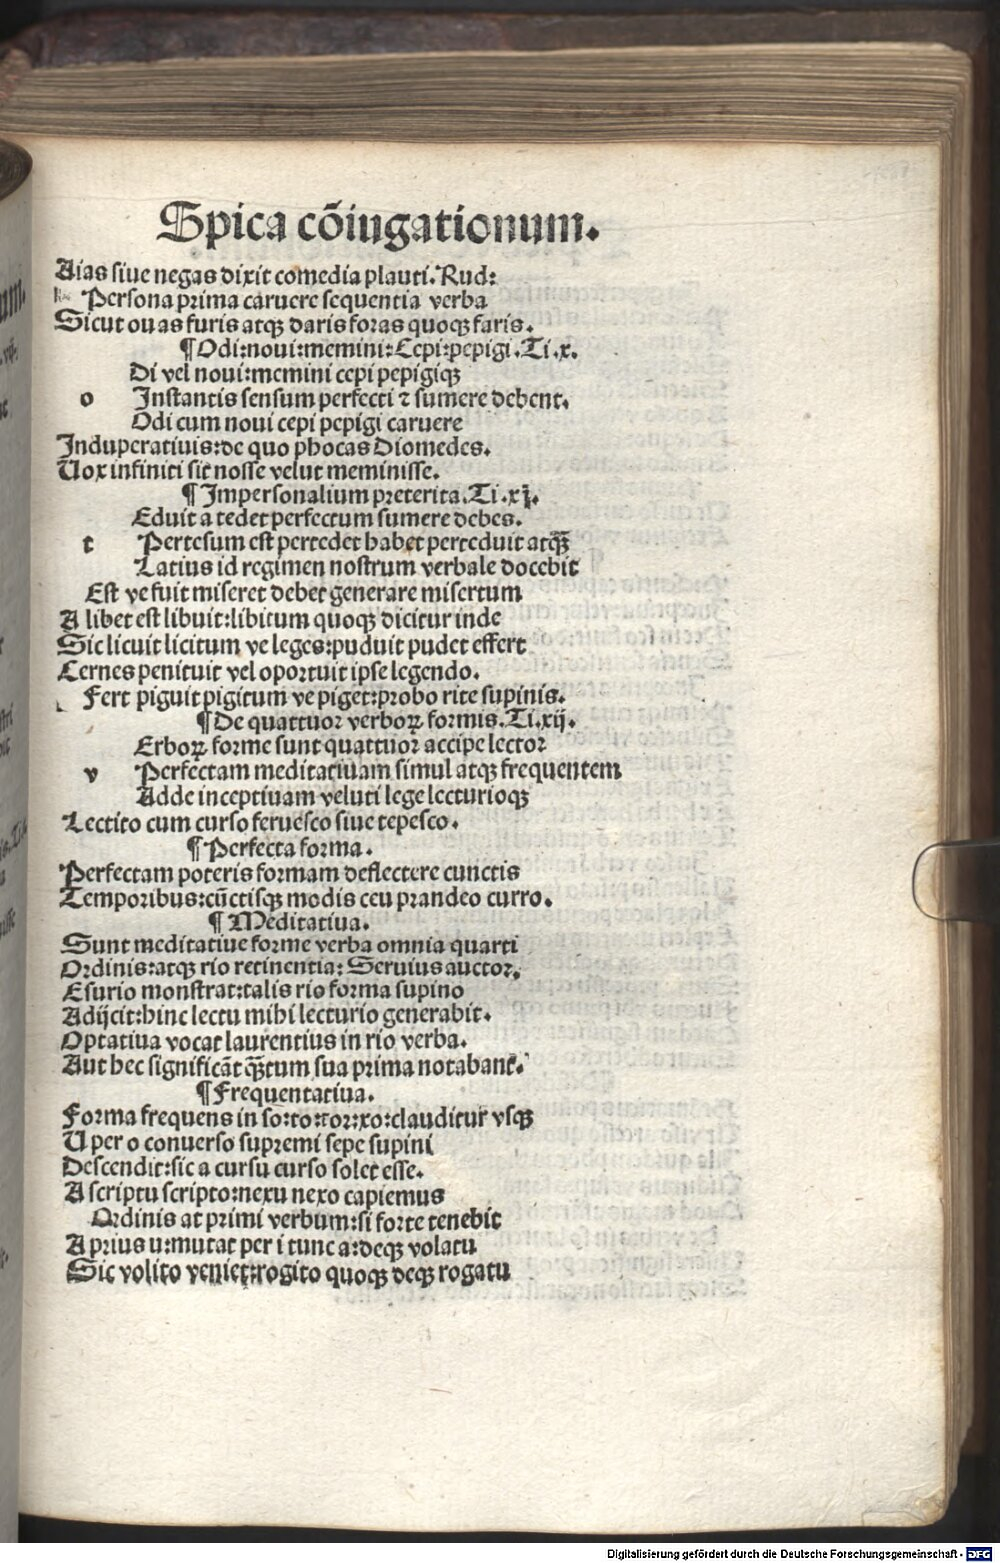 Spica cōiugationum.
Aias siue negas dixit comedia plauti. Rud:
Persona prima caruere sequentia verba
Sicut ouas furis atqȝ daris foras quoqȝ faris.
¶ Odi:noui:memini:Cepi:pepigi.Ti.x.
Di vel noui:memini cepi pepigiqȝ
o Instantis sensum perfecti ⁊ sumere debent.
Odi cum noui cepi pepigi caruere
Induperatiuis:de quo phocas Diomedes.
Uox infiniti sit nosse velut meminisse.
¶ Impersonalium preterita.Ti.xj.
Eduit a tedet perfectum sumere debes.
t Pertesum est pertedet habet perteduit atqȝ
Latius id regimen nostrum verbale docebit
Est ve fuit miseret debet generare misertum
A libet est libuit:libitum quoqȝ dicitur inde
Sic licuit licitum ve leges:puduit pudet effert
Cernes penituit vel oportuit ipse legendo.
Fert piguit pigitum ve piget:probo rite supinis.
¶ De quattuor verboꝝ formis.Ti.xij.
Erboꝝ forme sunt quattuor accipe lector
v Perfectam meditatiuam simul atqȝ frequentem
Adde inceptiuam veluti lege lecturioqȝ
Lectito cum curso feruesco siue tepesco.
¶ Perfecta forma.
Perfectam poteris formam deflectere cunctis
Temporibus:cūctisqȝ modis ceu prandeo curro.
¶ Meditatiua.
Sunt meditatiue forme verba omnia quarti
Ordinis:atqȝ rio retinentia: Seruius auctor.
Esurio monstrat:talis rio forma supino
Adijcit:hinc lectu mihi lecturio generabit.
Optatiua vocat laurentius in rio verba.
Aut hec significāt qȝtum sua prima notabant.
¶ Frequentatiua.
Forma frequens in so:to:tor:xo:clauditur vsqȝ
U per o conuerso supremi sepe supini
Descendit:sic a cursu curso solet esse.
A scriptu scripto:nexu nexo capiemus
Ordinis at primi verbum:si forte tenebit
A prius u:mutat per i tunc a:deqȝ volatu
Sic volito veniet:rogito quoqȝ deqȝ rogatu
Digitalisierung gefördert durch die Deutsche Forschungsgemeinschaft - DFG